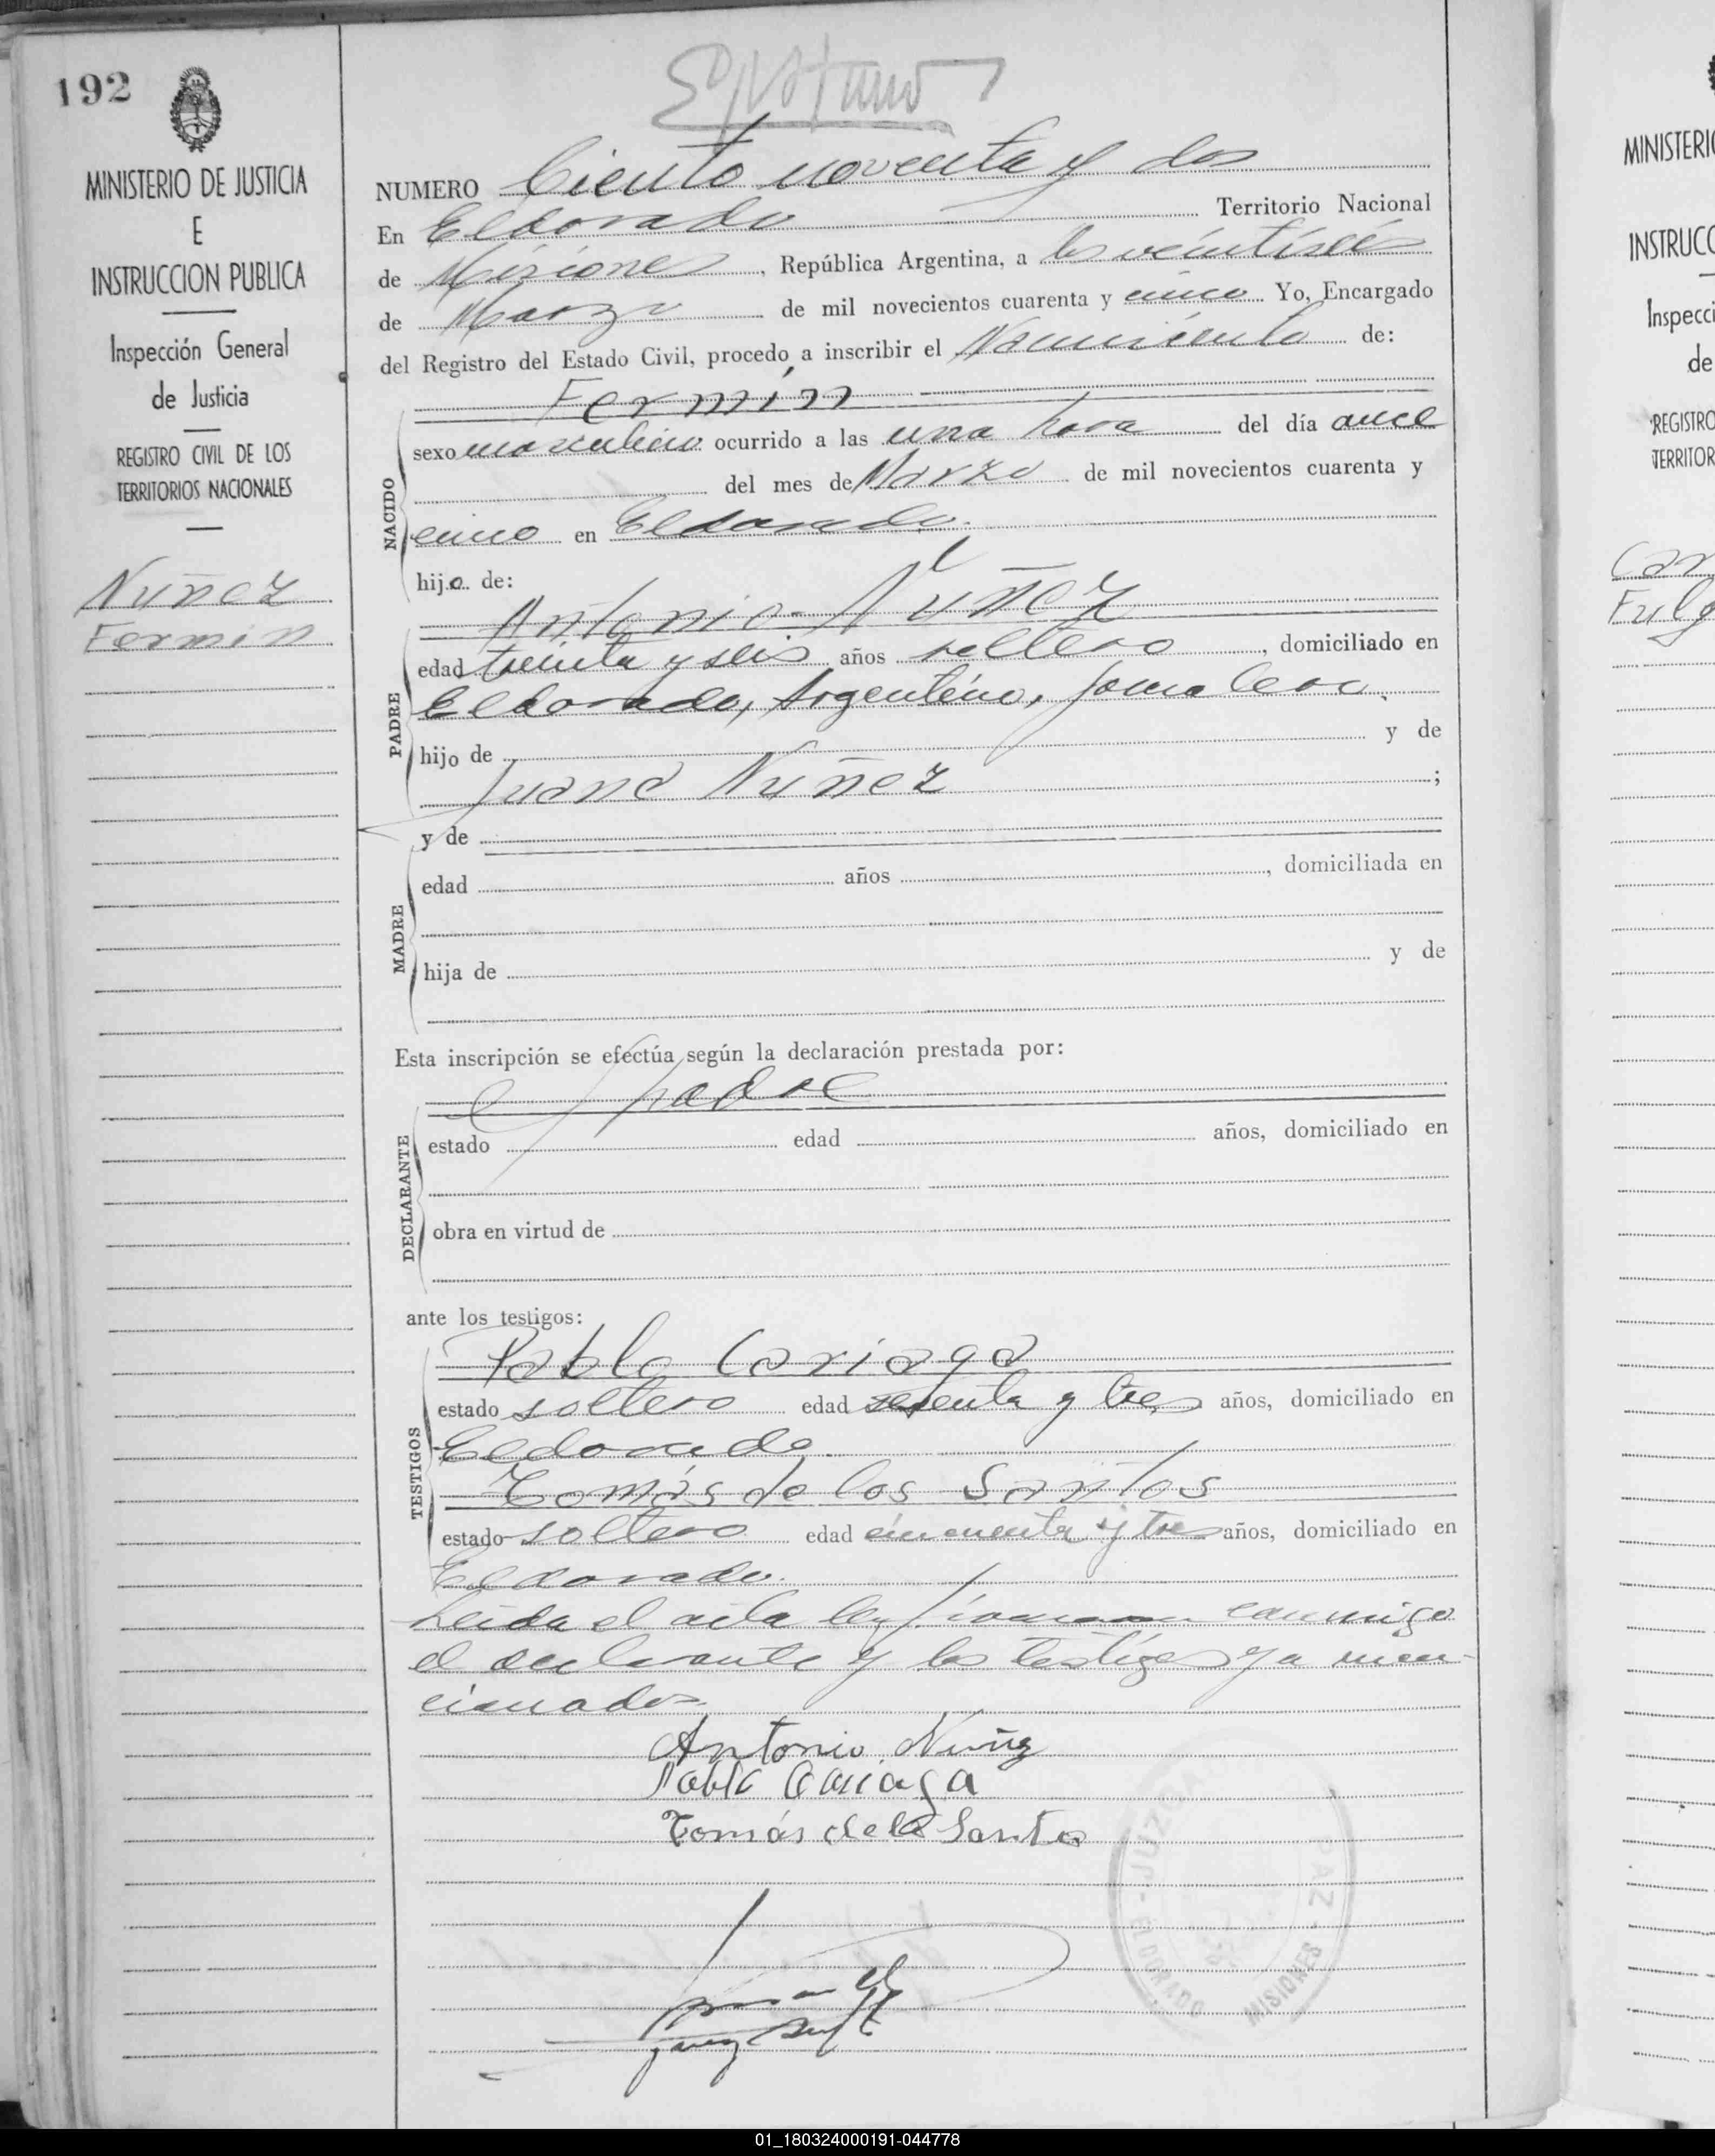 192
MINISTERIO DE JUSTICIA
E
INSTRUCCION PUBLICA
Inspección General
de Justicia
REGISTRO CIVIL DE LOS
TERRITORIOS NACIONALES
Nuñez
Fermin
NUMERO Ciento noventa y dos
En Eldorado Territorio Nacional
de Misiones, República Argentina, a los veintiseis
de Marzo de mil novecientos cuarenta y cinco Yo, Encargado
del Registro del Estado Civil, procedo a inscribir el Nacimiento de:
Fermín
NACIDO
sexo masculino ocurrido a las una hora del día once
del mes de Marzo de mil novecientos cuarenta y
cinco en Eldorado.
hijo de:
Antonio Núñez
PADRE
edad treinta y seis años soltero, domiciliado en
Eldorado, Argentino, jornalero,
hijo de y de
Juana Nuñez ;
MADRE
y de
edad años , domiciliada en
hija de y de
Esta inscripción se efectúa según la declaración prestada por:
el padre
DECLARANTE
estado edad años, domiciliado en
obra en virtud de
ante los testigos:
TESTIGOS
Pablo Cariaga
estado soltero edad y tres años, domiciliado en
Eldorado
Tomás de los Santos
estado soltero edad cincuenta y tres años, domiciliado en
Eldorado.
Leida el acta la firmaron conmigo
el declarante y los testigos ya men-
cionados.
Antonio Nuñez
Pablo Cariaga
Tomás de los Santos
JUZGADO PAZ
ELDORADO MISIONES
MINISTERI
INSTRUCC
Inspecci
de
REGISTRO
TERRITOR
Car
Fulg
01_180324000191-044778